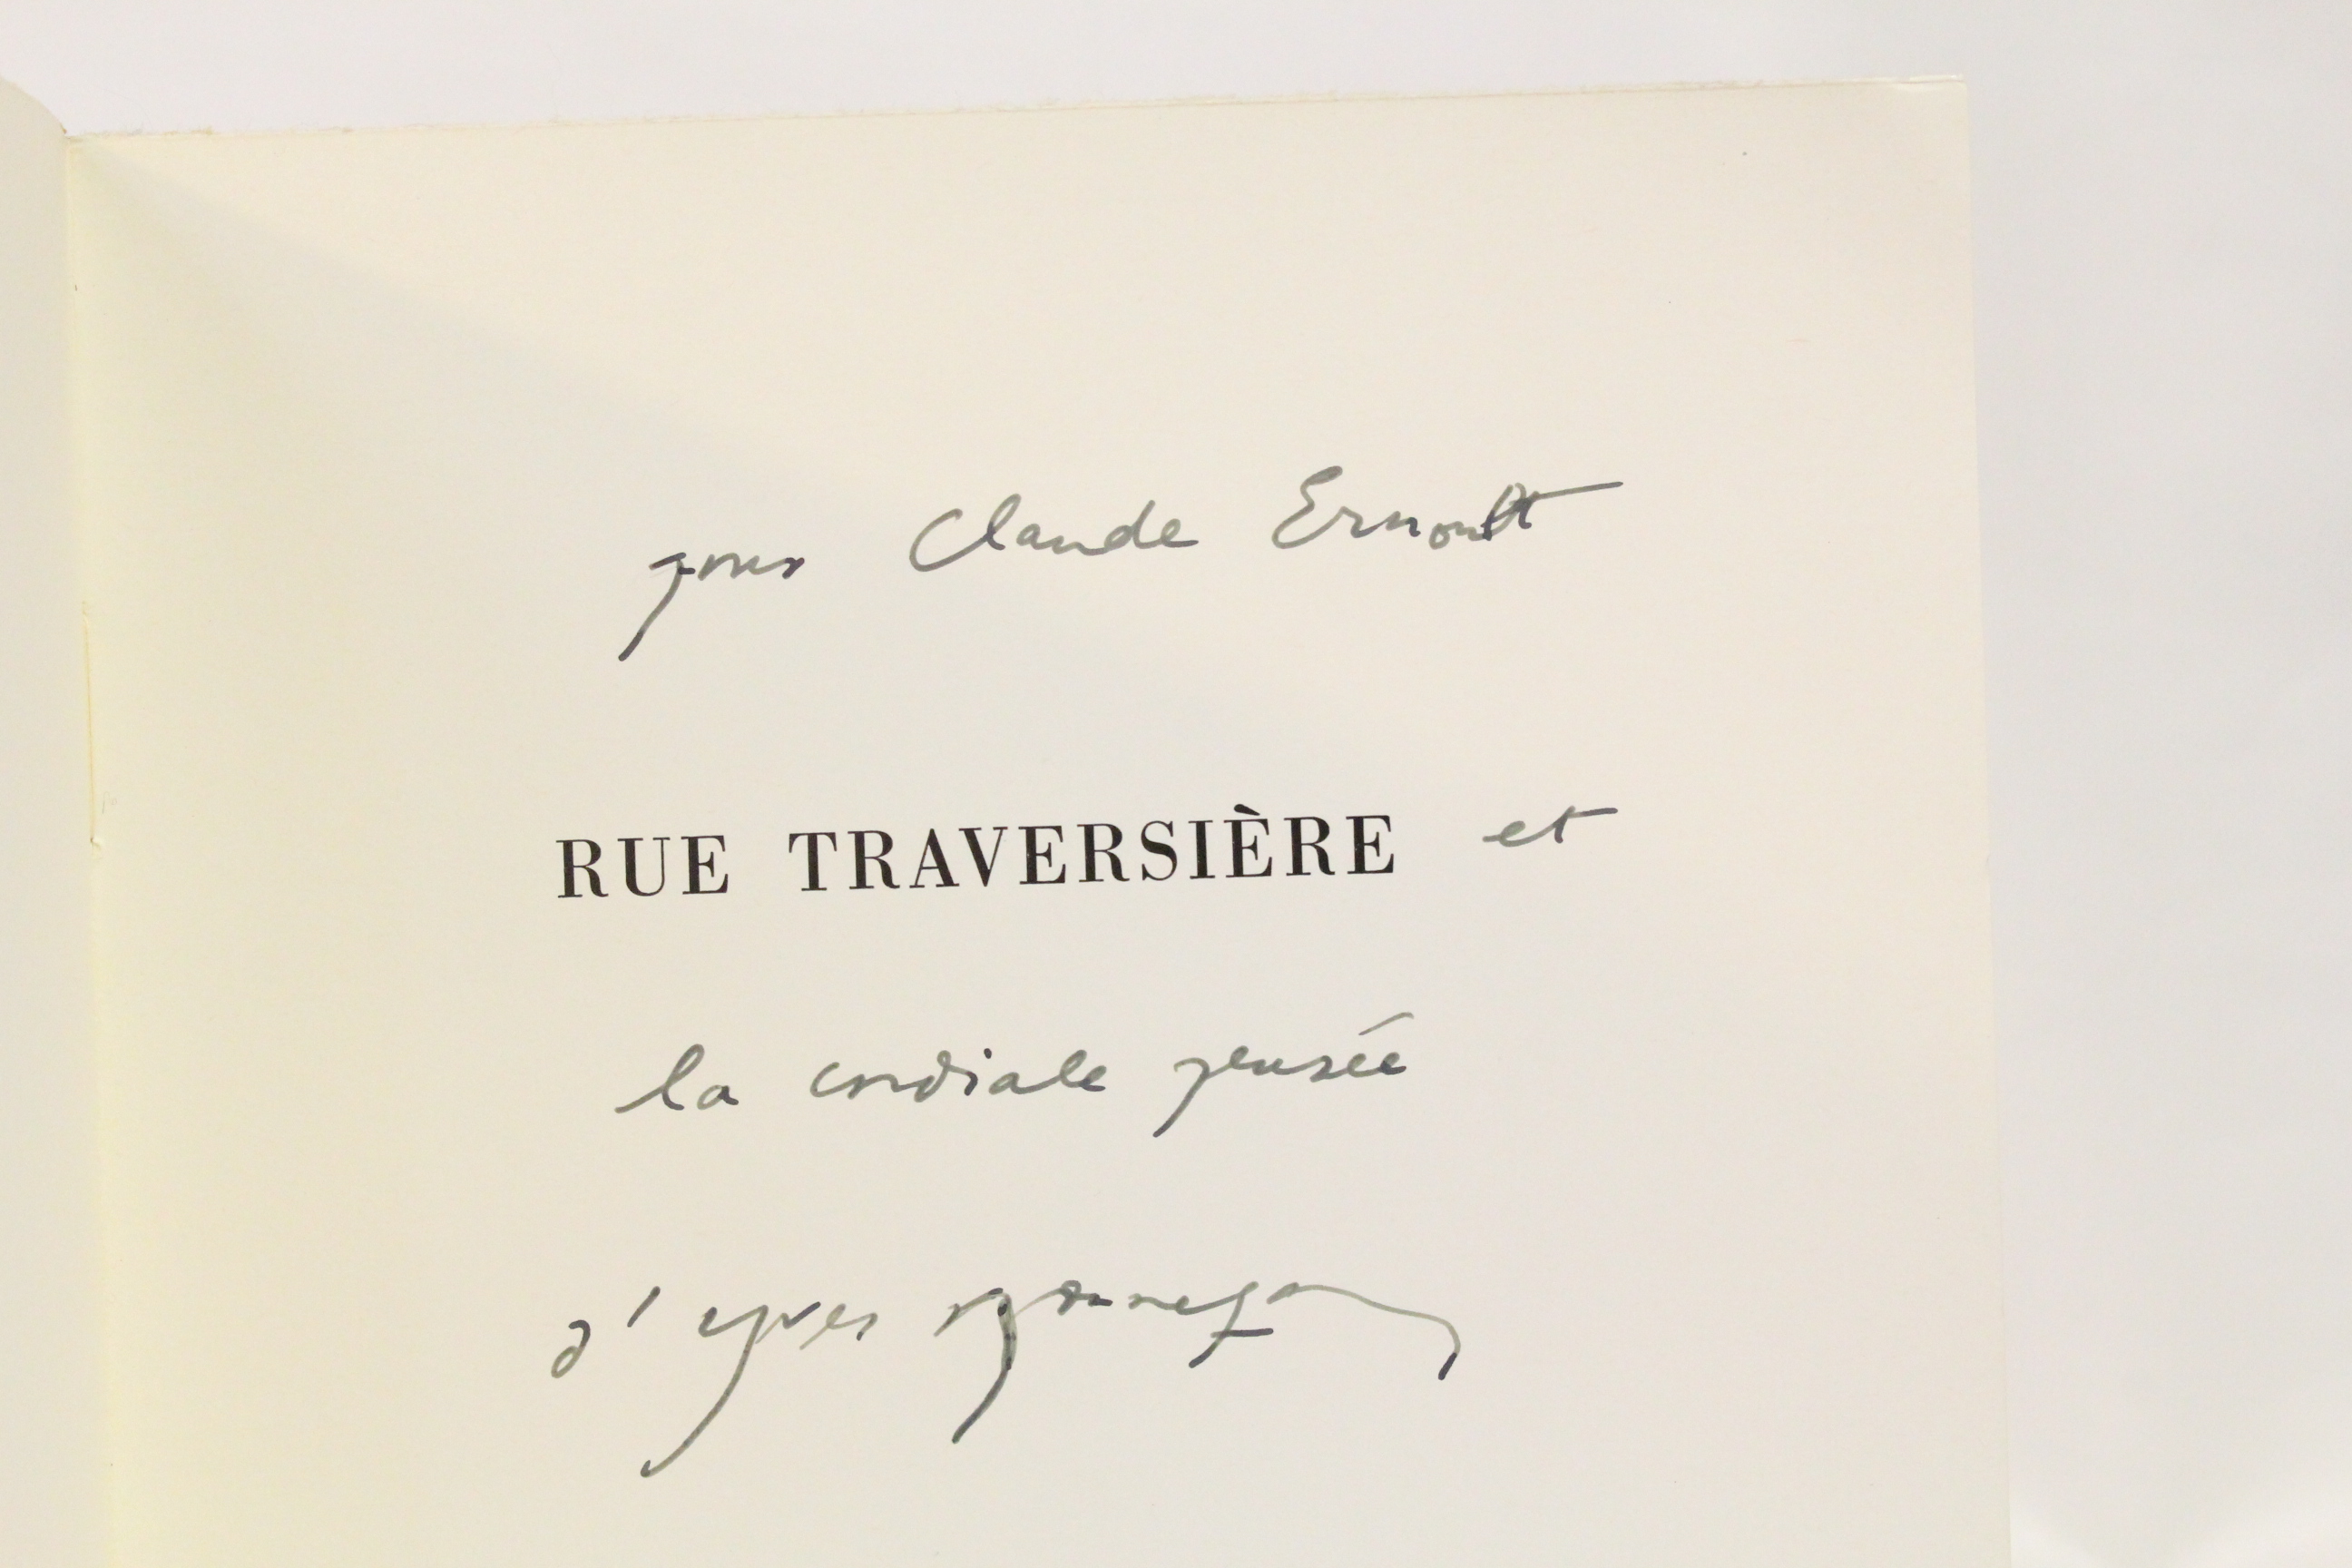 pour Claude Ernoult
RUE TRAVERSIÈRE et
la cordiale pensée
d'Yves Bonnefoy